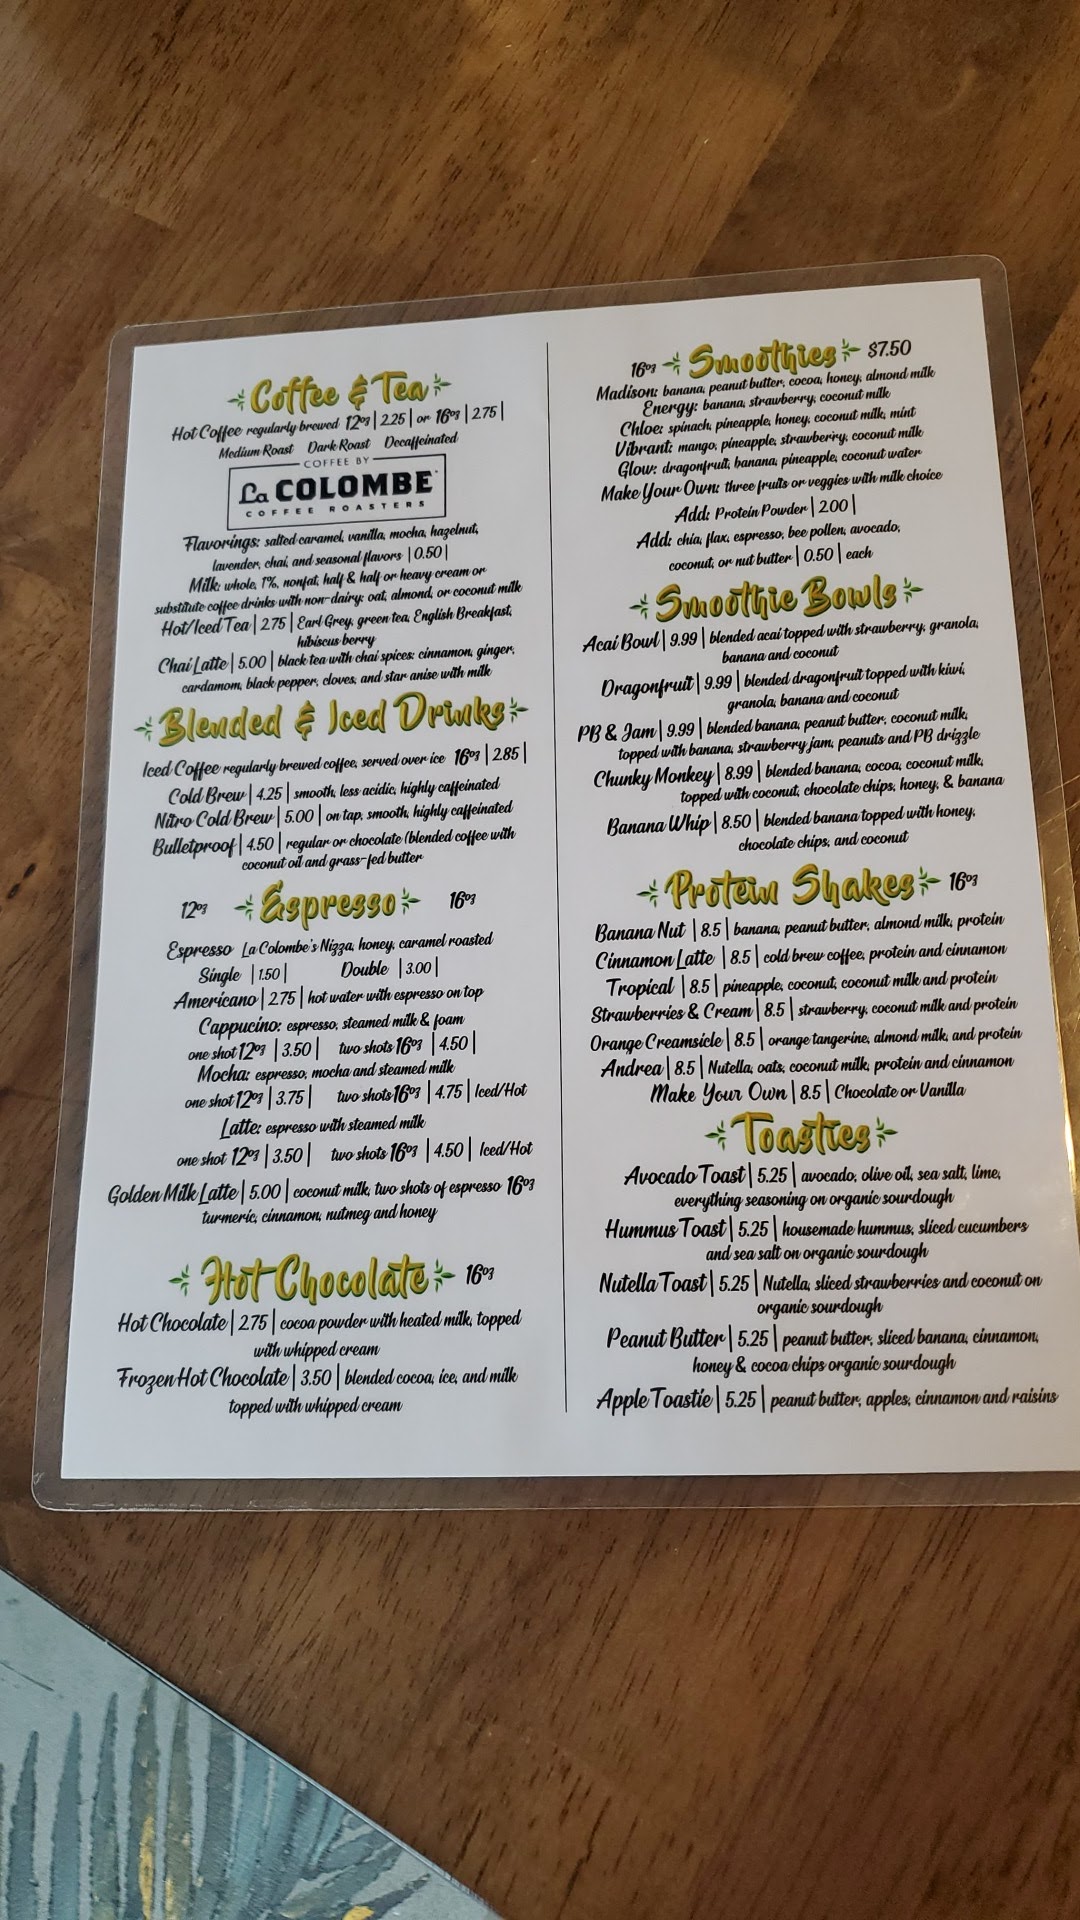 Coffee & Tea
Hot Coffee regularly brewed 12oz | 2.25 | or 16oz | 2.75 |
Medium Roast Dark Roast Decaffeinated
COFFEE BY
La COLOMBE
COFFEE ROASTERS
Flavorings: salted caramel, vanilla, mocha, hazelnut,
lavender, chai, and seasonal flavors | 0.50 |
Milk: whole, 1%, nonfat, half & half or heavy cream or
substitute coffee drinks with non-dairy: oat, almond, or coconut milk
Hot/Iced Tea | 2.75 | Earl Grey, green tea, English Breakfast,
hibiscus berry
Chai Latte | 5.00 | black tea with chai spices: cinnamon, ginger,
cardamom, black pepper, cloves, and star anise with milk
Blended & Iced Drinks
Iced Coffee regularly brewed coffee, served over ice 16oz | 2.85 |
Cold Brew | 4.25 | smooth, less acidic, highly caffeinated
Nitro Cold Brew | 5.00 | on tap, smooth, highly caffeinated
Bulletproof | 4.50 | regular or chocolate (blended coffee with
coconut oil and grass-fed butter
12oz Espresso 16oz
Espresso La Colombe's Nizza, honey, caramel roasted
Single | 1.50 | Double | 3.00 |
Americano | 2.75 | hot water with espresso on top
Cappucino: espresso, steamed milk & foam
one shot 12oz | 3.50 | two shots 16oz | 4.50 |
Mocha: espresso, mocha and steamed milk
one shot 12oz | 3.75 | two shots 16oz | 4.75 | Iced/Hot
Latte: espresso with steamed milk
one shot 12oz | 3.50 | two shots 16oz | 4.50 | Iced/Hot
Golden Milk Latte | 5.00 | coconut milk, two shots of espresso 16oz
turmeric, cinnamon, nutmeg and honey
Hot Chocolate 16oz
Hot Chocolate | 2.75 | cocoa powder with heated milk, topped
with whipped cream
Frozen Hot Chocolate | 3.50 | blended cocoa, ice, and milk
topped with whipped cream
16oz Smoothies $7.50
Madison: banana, peanut butter, cocoa, honey, almond milk
Energy: banana, strawberry, coconut milk
Chloe: spinach, pineapple, honey, coconut milk, mint
Vibrant: mango, pineapple, strawberry, coconut milk
Glow: dragonfruit, banana, pineapple, coconut water
Make Your Own: three fruits or veggies with milk choice
Add: Protein Powder | 2.00 |
Add: chia, flax, espresso, bee pollen, avocado,
coconut, or nut butter | 0.50 | each
Smoothie Bowls
Acai Bowl | 9.99 | blended acai topped with strawberry, granola,
banana and coconut
Dragonfruit | 9.99 | blended dragonfruit topped with kiwi,
granola, banana and coconut
PB & Jam | 9.99 | blended banana, peanut butter, coconut milk,
topped with banana, strawberry jam, peanuts and PB drizzle
Chunky Monkey | 8.99 | blended banana, cocoa, coconut milk,
topped with coconut, chocolate chips, honey, & banana
Banana Whip | 8.50 | blended banana topped with honey,
chocolate chips, and coconut
Protein Shakes 16oz
Banana Nut | 8.5 | banana, peanut butter, almond milk, protein
Cinnamon Latte | 8.5 | cold brew coffee, protein and cinnamon
Tropical | 8.5 | pineapple, coconut, coconut milk and protein
Strawberries & Cream | 8.5 | strawberry, coconut milk and protein
Orange Creamsicle | 8.5 | orange tangerine, almond milk, and protein
Andrea | 8.5 | Nutella, oats, coconut milk, protein and cinnamon
Make Your Own | 8.5 | Chocolate or Vanilla
Toasties
Avocado Toast | 5.25 | avocado, olive oil, sea salt, lime,
everything seasoning on organic sourdough
Hummus Toast | 5.25 | housemade hummus, sliced cucumbers
and sea salt on organic sourdough
Nutella Toast | 5.25 | Nutella, sliced strawberries and coconut on
organic sourdough
Peanut Butter | 5.25 | peanut butter, sliced banana, cinnamon,
honey & cocoa chips organic sourdough
Apple Toastie | 5.25 | peanut butter, apples, cinnamon and raisins